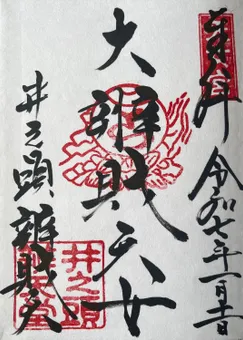 奉拝
令和七年一月十一日
大辨財天女
井之頭辨財天
井之頭